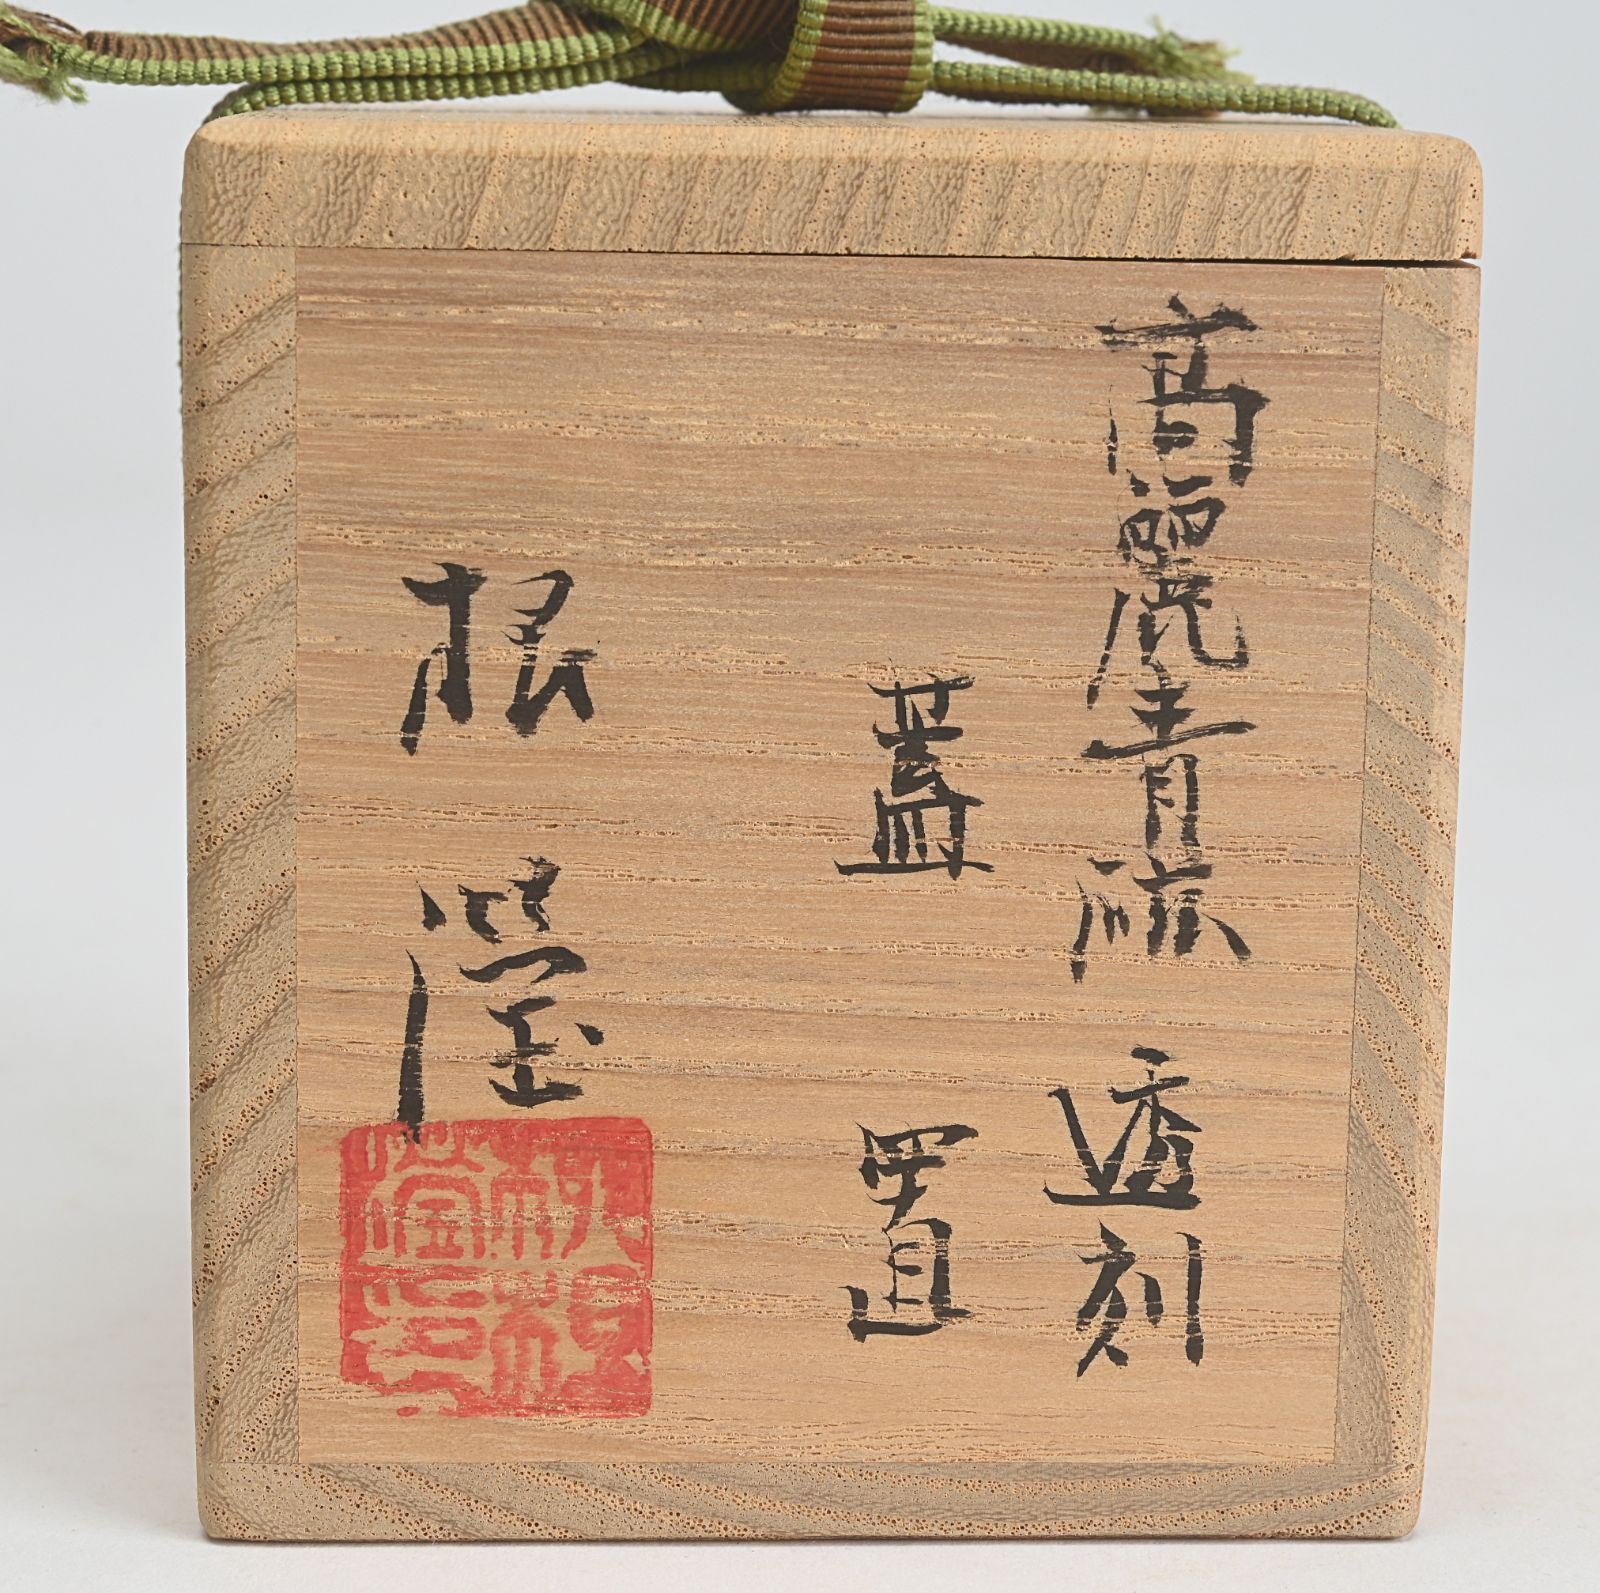 高麗青磁 透刻
蓋 置
根 瑩